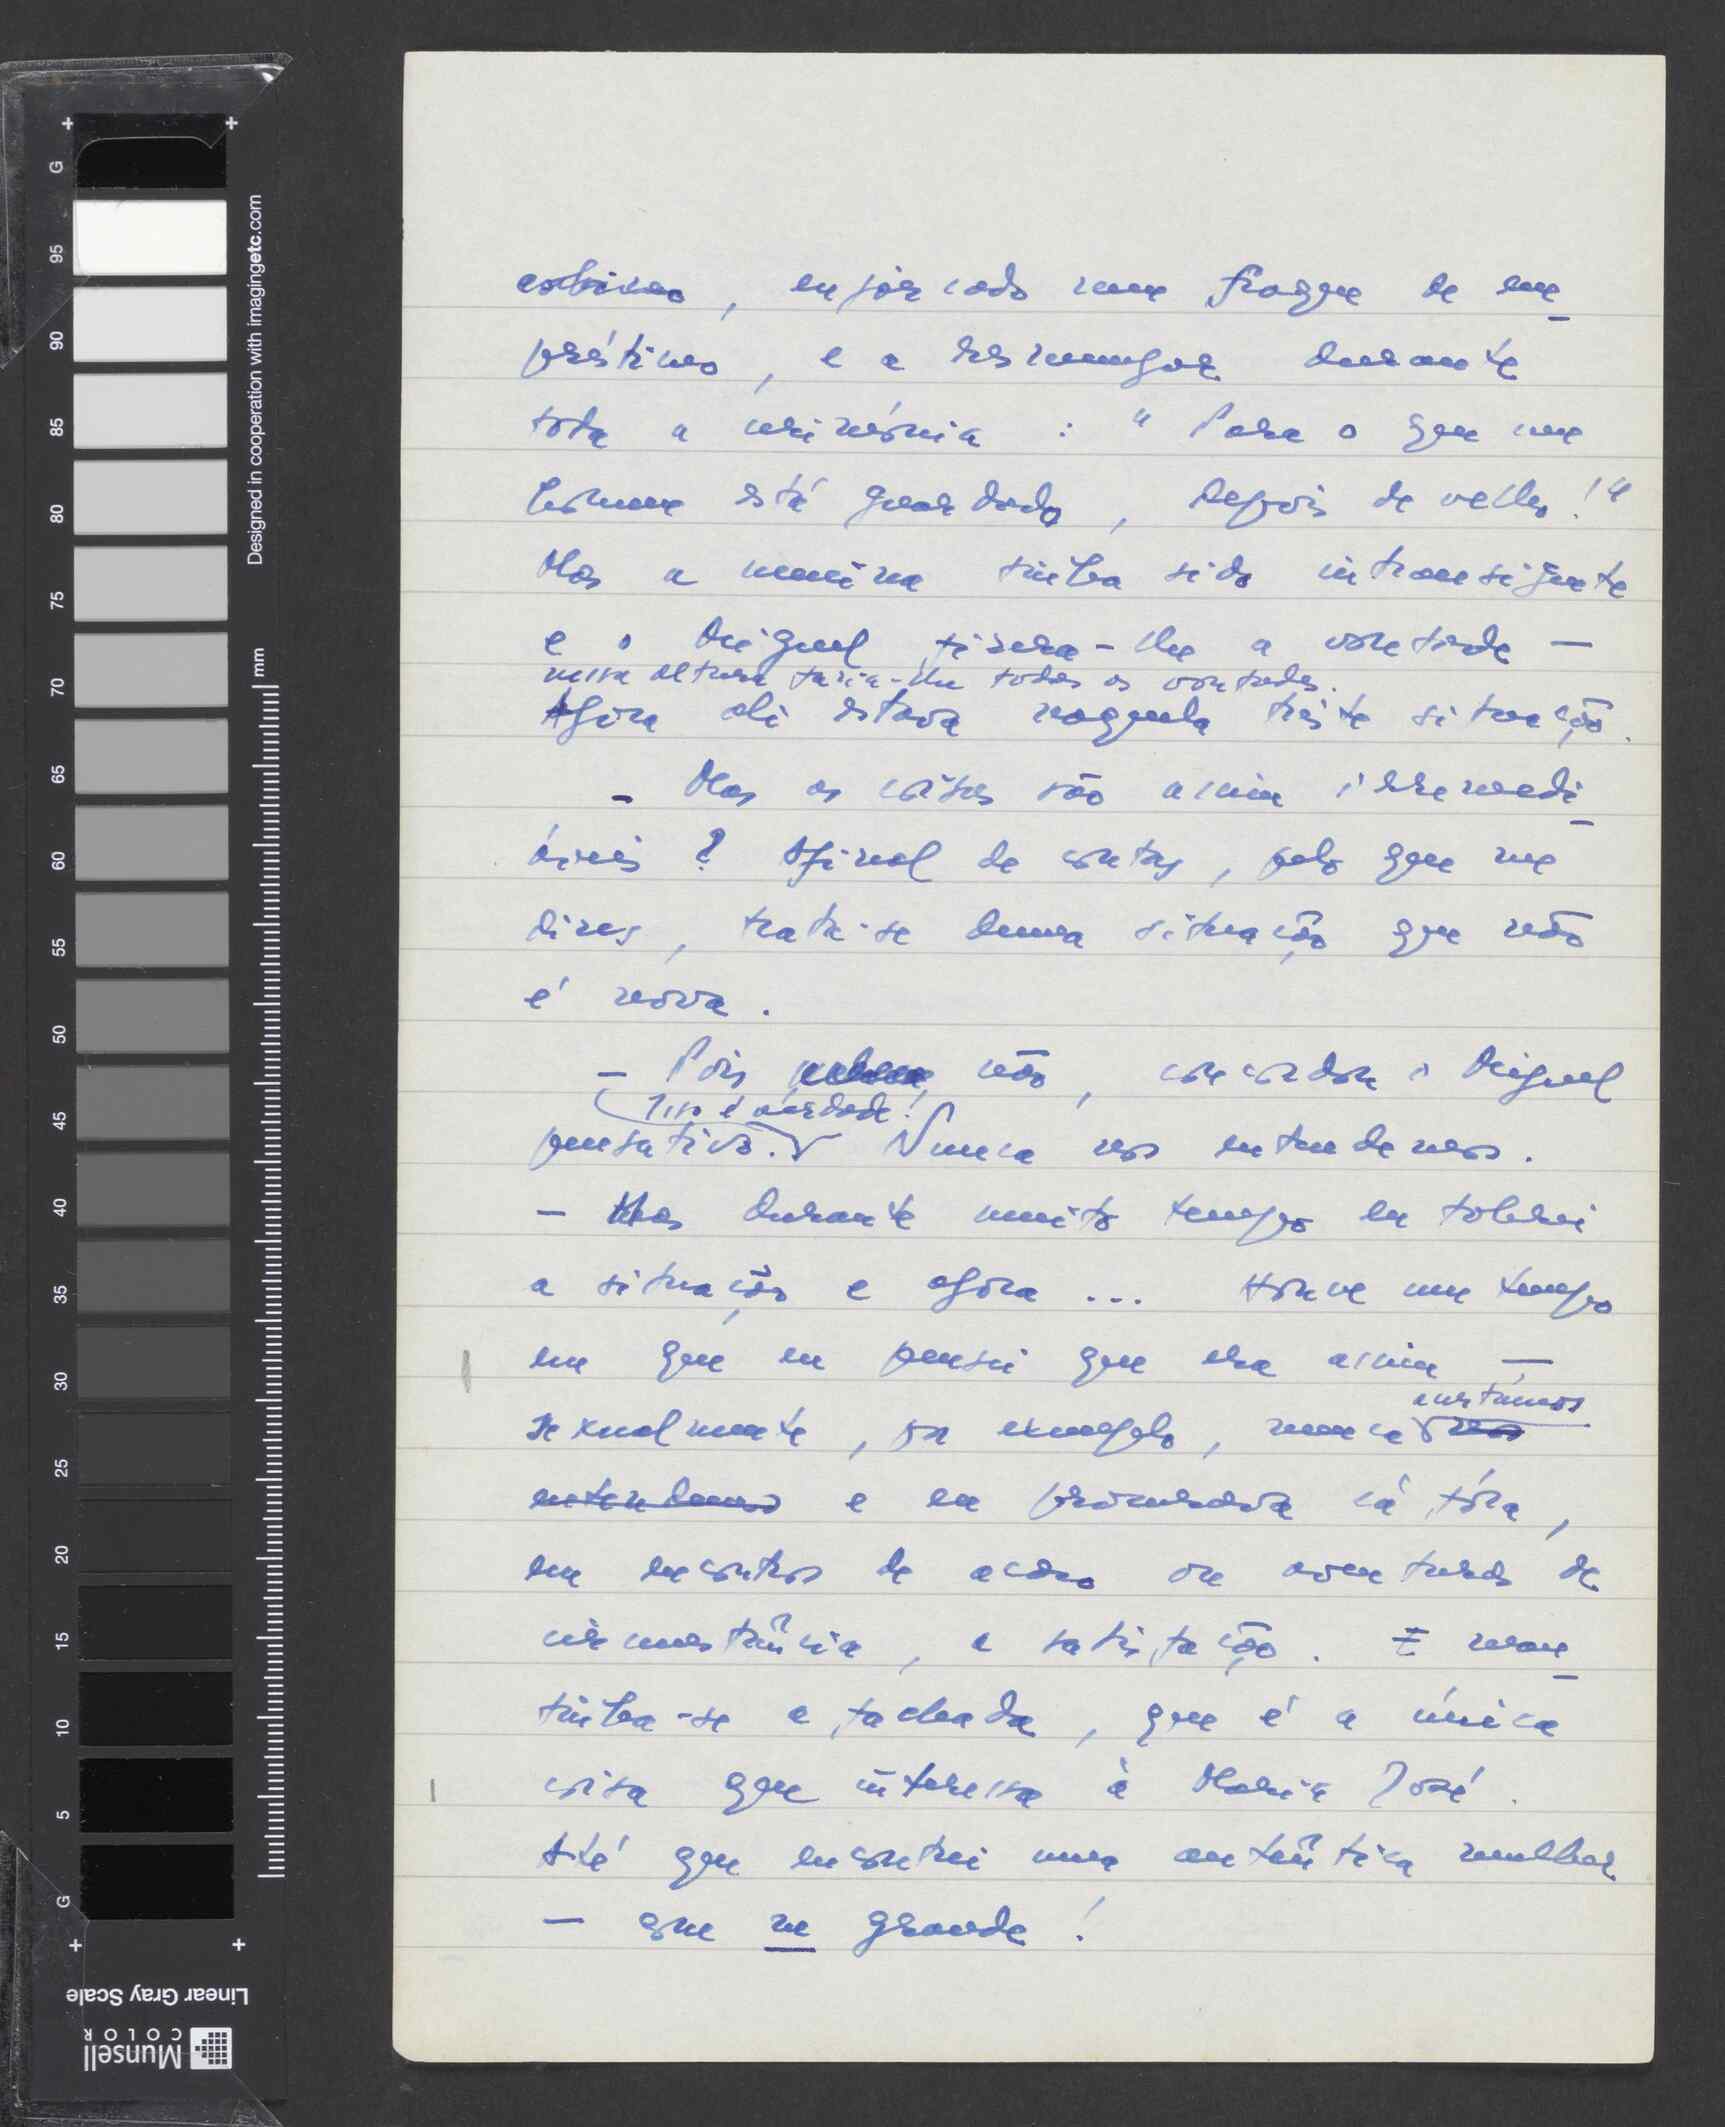 , enforcado num fraque de em-
préstimo, e a resmungar durante
toda a cerimónia : "Para o que um
homem está guardado, depois de velho!"
Mas a menina tinha sido intransigente
e o Miguel fizera-lhe a vontade —
nessa altura fazia-lhe todas as vontades.
Agora ali estava naquela triste situação.
- Mas as coisas são assim irremedi-
áveis? Afinal de contas, pelo que me
dizes, trata-se duma situação que não
é nova.
- Pois não, concordou o Miguel
Isso é verdade!
pensativo. Nunca nos entendemos.
- Mas durante muito tempo eu tolerei
a situação e agora ... Houve um tempo
em que eu pensei que era assim —
acertámos
sexualmente, por exemplo, nunca nos
entendemos e eu procurava lá fóra,
em encontros de acaso ou aventuras de
circunstância, a satisfação. E man-
tinha-se a fachada, que é a única
coisa que interessa à Maria José.
Até que encontrei uma autêntica mulher
— que me grande!
Designed in cooperation with imagingetc.com
mm
G 95 90 85 80 75 70 65 60 55 50 45 40 35 30 25 20 15 10 5 G
Linear Gray Scale
Munsell
COLOR